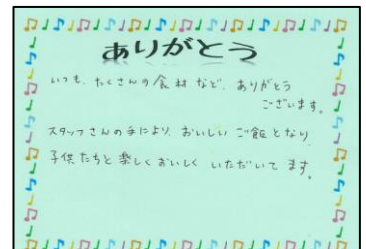 ありがとう
いつも、たくさんの食材など、ありがとう
ございます。
スタッフさんの手により、おいしいご飯となり、
子供たちと楽しくおいしく いただいてます。